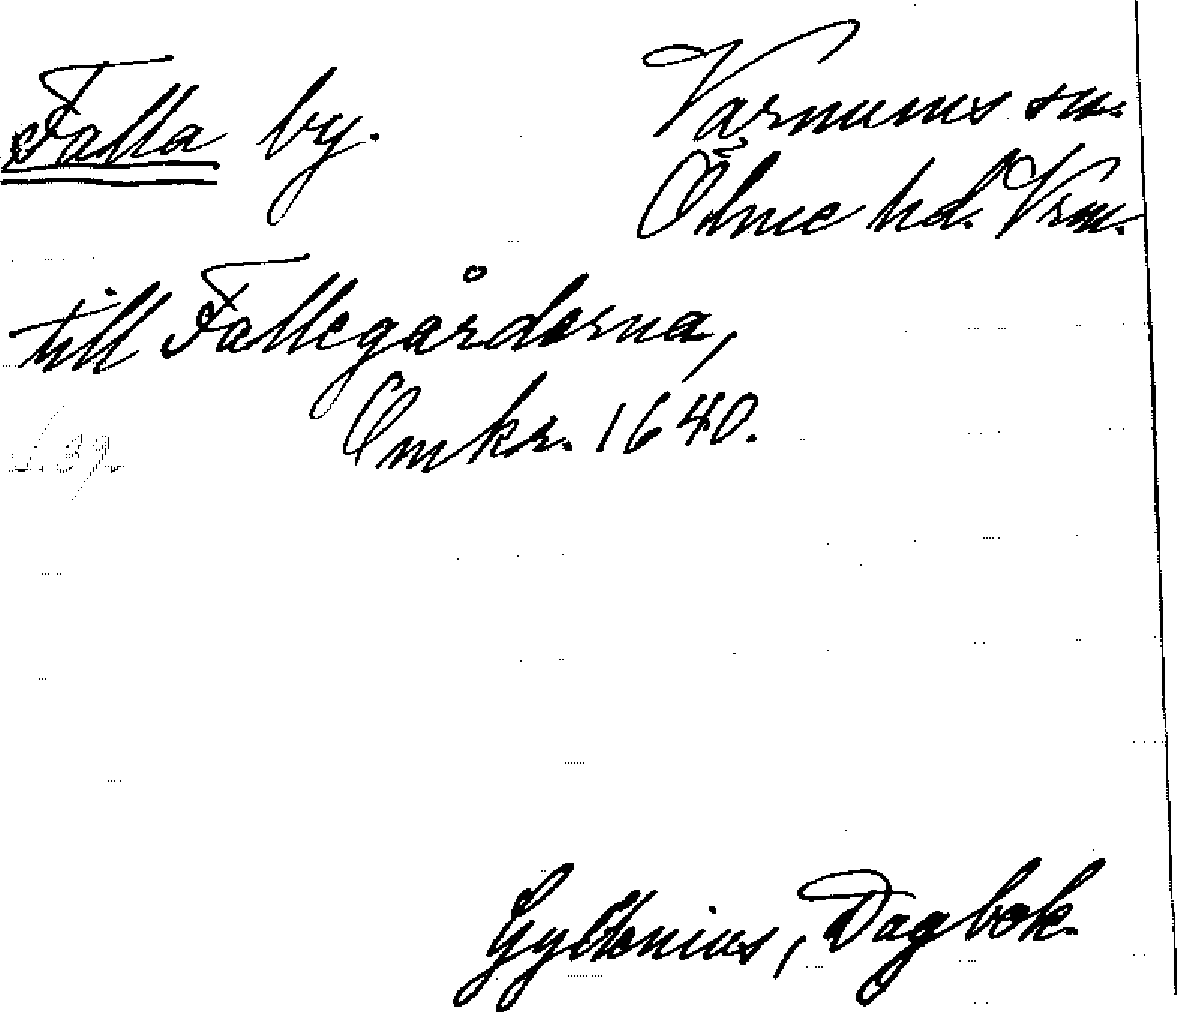 Falla by.
Varnums sn.
Ölme hd. Vrm.
till Fallegårderna,
Omkr. 1640.
S. 39.
Gyllenius, Dagbok.